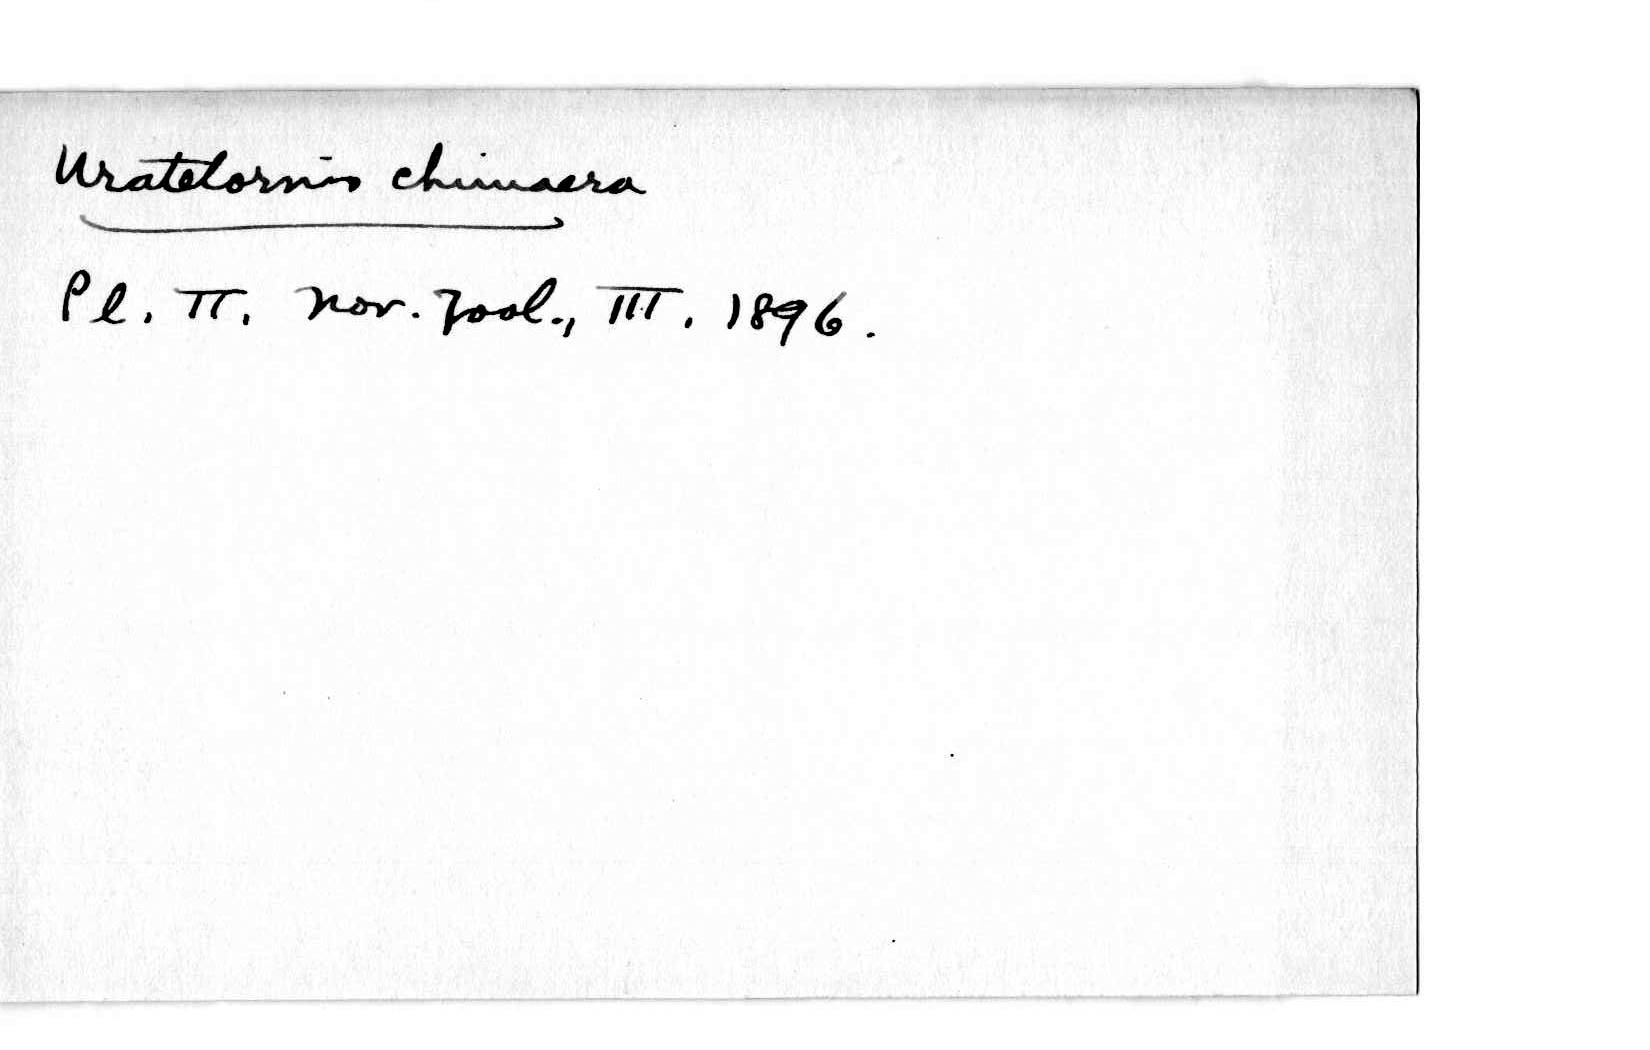 Uratelornis chimaera
Pl. II. Nov. Zool., III. 1896.